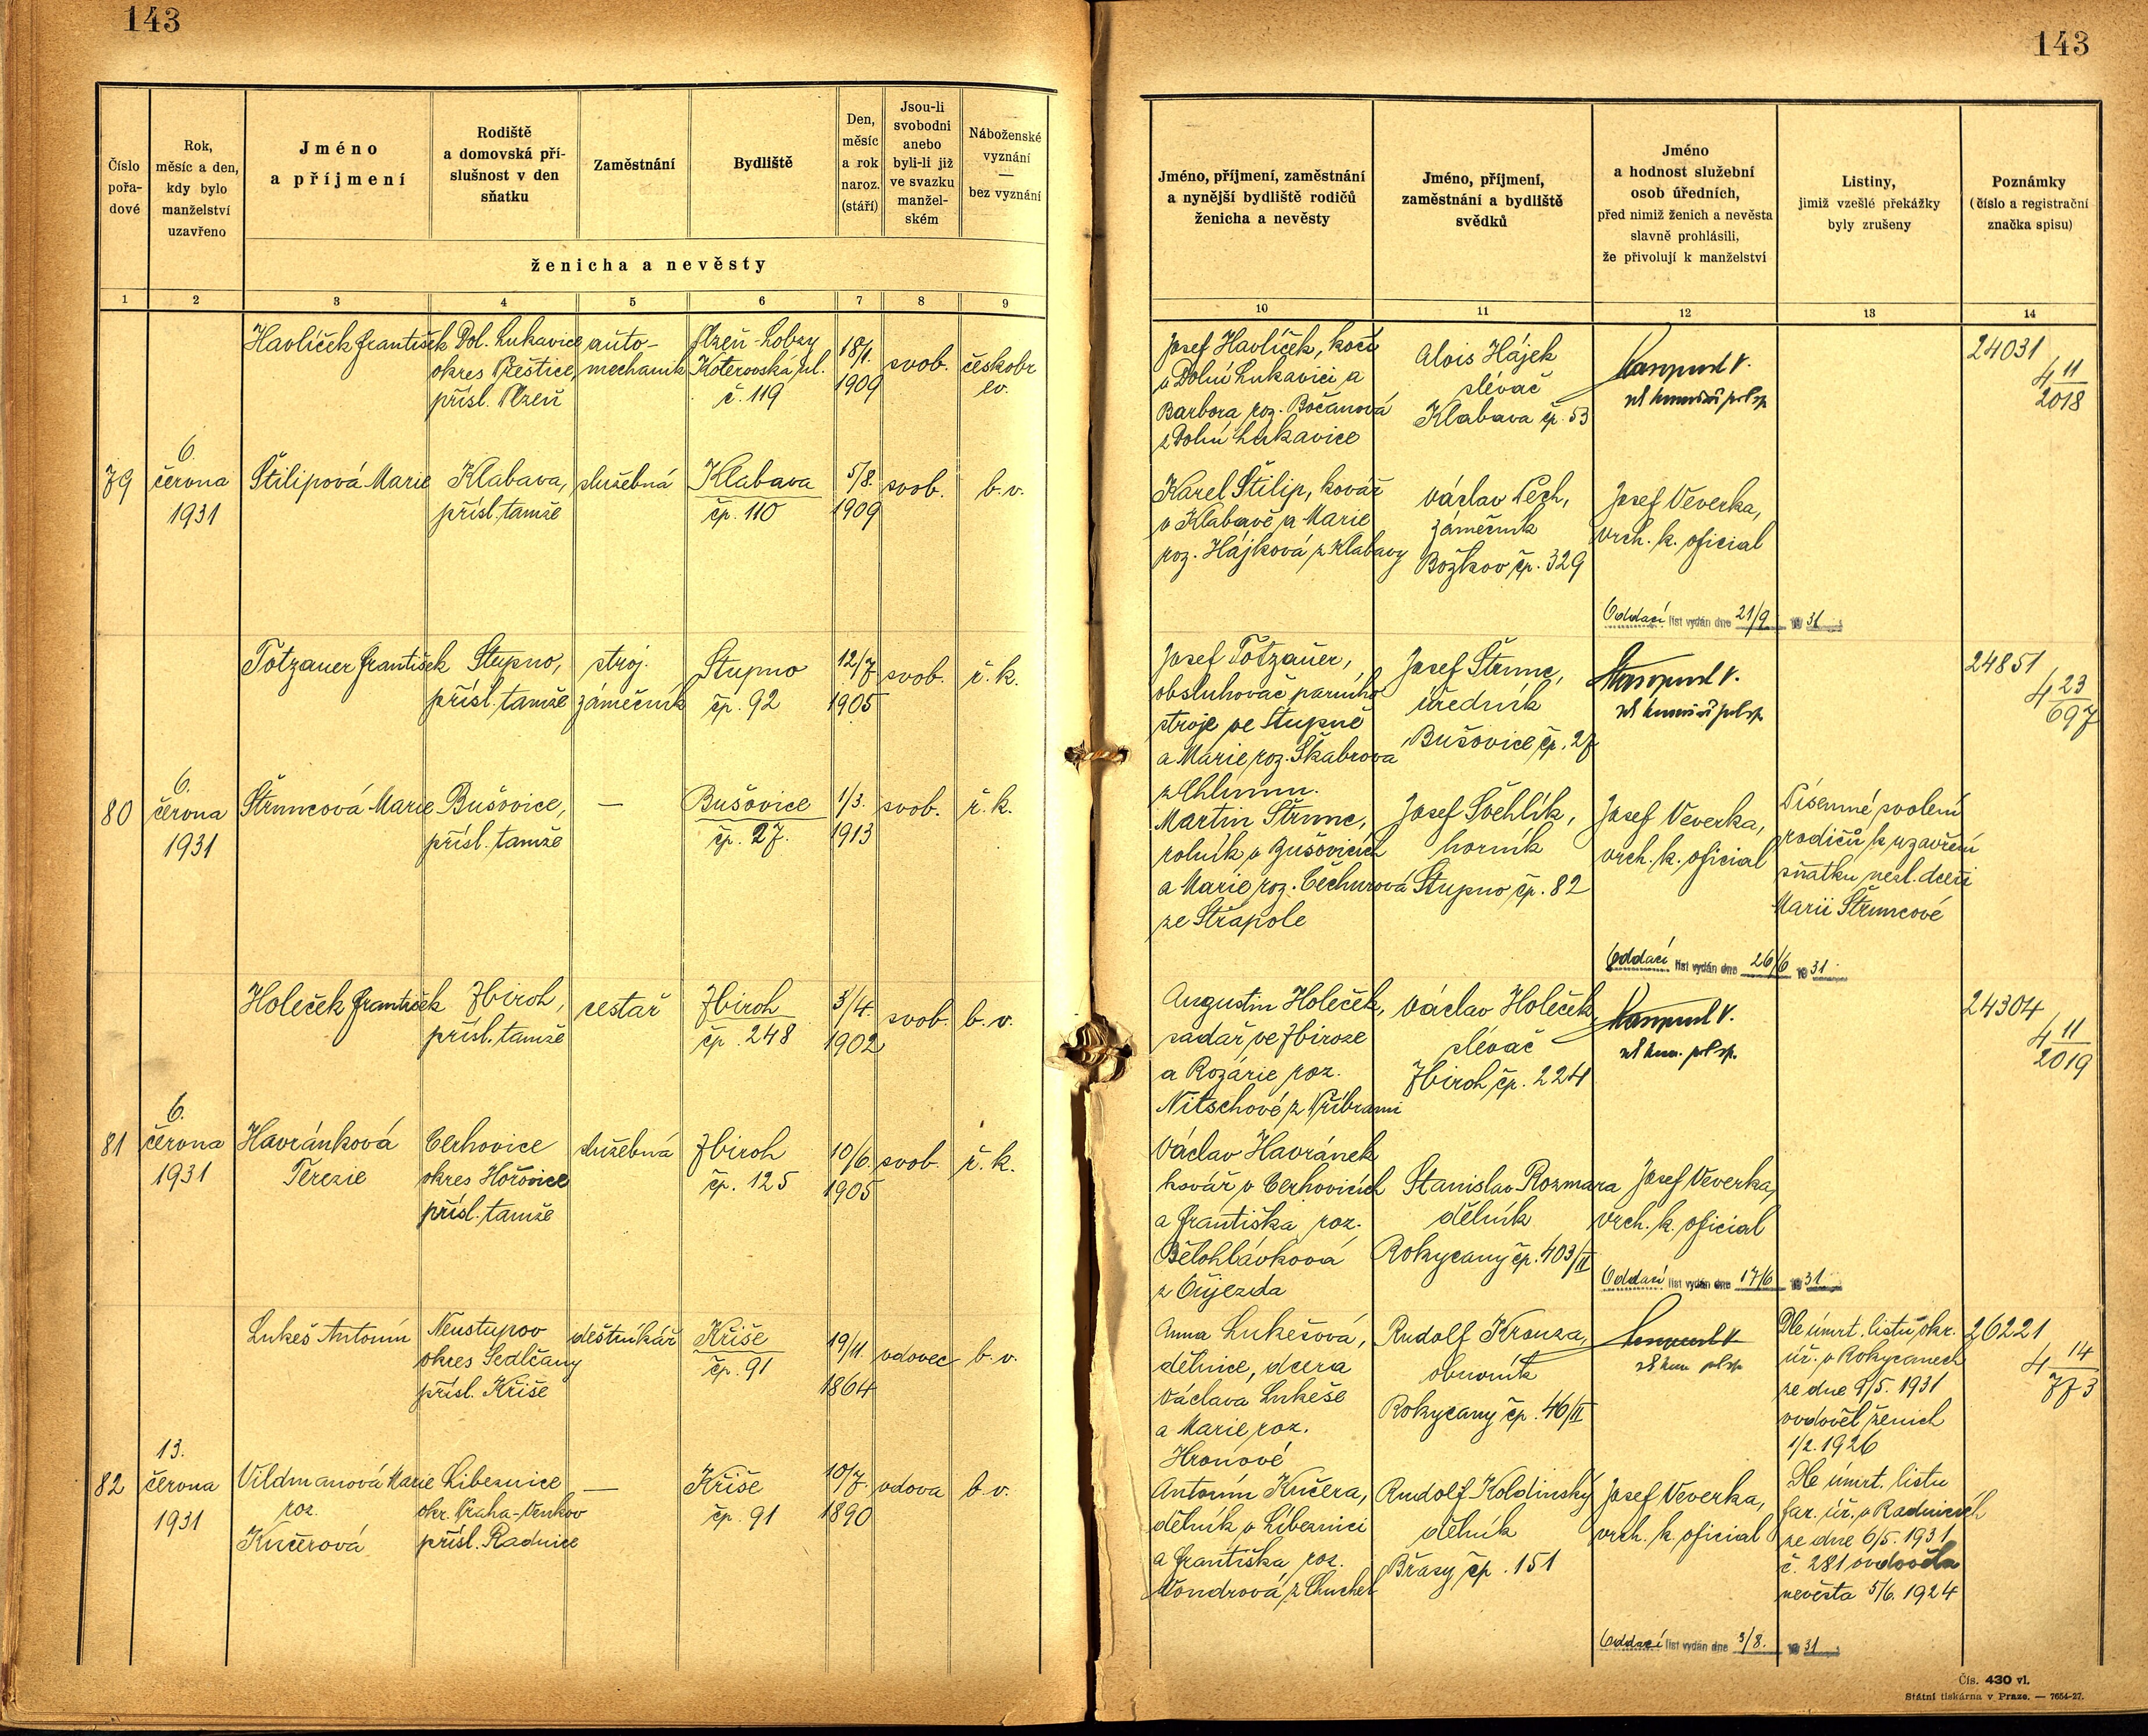 143
143
Číslo pořa-dové
Rok, měsíc a den, kdy bylo manželství uzavřeno
Jméno a příjmení
Rodiště a domovská pří-slušnost v den sňatku
Zaměstnání
Bydliště
Den, měsíc a rok naroz. (stáří)
Jsou-li svobodni anebo byli-li již ve svazku manžel-ském
Náboženské vyznání — bez vyznání
ženicha a nevěsty
1 2 3 4 5 6 7 8 9
Jméno, příjmení, zaměstnání a nynější bydliště rodičů ženicha a nevěsty
Jméno, příjmení, zaměstnání a bydliště svědků
Jméno a hodnost služební osob úředních, před nimiž ženich a nevěsta slavně prohlásili, že přivolují k manželství
Listiny, jimiž vzešlé překážky byly zrušeny
Poznámky (číslo a registrační značka spisu)
10 11 12 13 14
Havlíček František
Dol. Lukavice
okres Přeštice,
přísl. Plzeň
auto-
mechanik
Plzeň-Lobzy
Koterovská ul.
č. 119
18/1.
1909
svob.
českobr
ev.
Josef Havlíček, kočí
v Dolní Lukavici a
Barbora roz. Bočanová
z Dolní Lukavice
Alois Hájek
slévač
Klabava čp. 53
24031
4 11
2018
79
6.
června
1931
Štilipová Marie
Klabava,
přísl. tamže
služebná
Klabava
čp. 110
5/8.
1909
svob.
b. v.
Karel Štilip, kovář
v Klabavě a Marie
roz. Hájková z Klabavy
Václav Pech,
zámečník
Božkov čp. 329
Josef Veverka,
vrch. k. oficial
Oddací list vydán dne 21/9 1931
Totzauer František
Stupno,
přísl. tamže
stroj.
zámečník
Stupno
čp. 92
12/7
1905
svob.
ř. k.
Josef Totzauer,
obsluhovač parního
stroje ve Stupně
a Marie roz. Škabrová
z Chlumu.
Josef Štrunc,
úředník
Bušovice čp. 27
24851
4 23
697
80
6.
června
1931
Štruncová Marie
Bušovice,
přísl. tamže
—
Bušovice
čp. 27.
1/3.
1913
svob.
ř. k.
Martin Štrunc,
rolník v Bušovicích
a Marie roz. Čechurová
ze Střapole
Josef Švehlík,
horník
Stupno čp. 82
Josef Veverka,
vrch. k. oficial
Písemné svolení
rodičů k uzavření
sňatku nezl. dceři
Marii Štruncové
Oddací list vydán dne 26/6 1931
Holeček František
Zbiroh,
přísl. tamže
cestář
Zbiroh
čp. 248
3/4.
1902
svob.
b. v.
Augustin Holeček,
sadař ve Zbiroze
a Rozárie roz.
Nitschové z Příbrami
Václav Holeček
slévač
Zbiroh čp. 224
24304
4 11
2019
81
6.
června
1931
Havránková
Terezie
Cerhovice
okres Hořovice
přísl. tamže
služebná
Zbiroh
čp. 125
10/6.
1905
svob.
ř. k.
Václav Havránek
kovář v Cerhovicích
a Františka roz.
Bělohlávková
z Újezda
Stanislav Rozmara
dělník
Rokycany čp. 403/II
Josef Veverka,
vrch. k. oficial
Oddací list vydán dne 17/6 1931
Lukeš Antonín
Neustupov
okres Sedlčany
přísl. Kříše
deštníkář
Kříše
čp. 91
19/11.
1864
vdovec
b. v.
Anna Lukešová,
dělnice, dcera
Václava Lukeše
a Marie roz.
Hronové
Rudolf Krouza,
obuvník
Rokycany čp. 46/II
Dle úmrt. listu okr.
úř. v Rokycanech
ze dne 9/5. 1931
ovdověl ženich
1/2. 1926
26221
4 14
773
82
13.
června
1931
Vildmanová Marie
roz.
Kučerová
Libeznice
okr. Praha-Venkov
přísl. Radnice
—
Kříše
čp. 91
10/7.
1890
vdova
b. v.
Antonín Kučera,
dělník v Libeznici
a Františka roz.
Vondrová z Chuchel
Rudolf Koldinský
dělník
Břasy čp. 151
Josef Veverka,
vrch. k. oficial
Dle úmrt. listu
far. úř. v Radnicích
ze dne 6/5. 1931
č. 281 ovdověla
nevěsta 5/6. 1924
Oddací list vydán dne 3/8. 1931
Čís. 430 vl.
Státní tiskárna v Praze. — 7654-27.